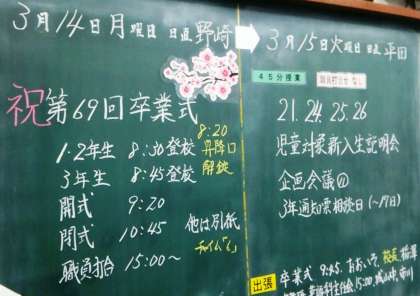 3月14日月曜日 日直 野崎
祝 第69回卒業式
1・2年生 8:30登校
3年生 8:45登校
8:20
昇降口
解錠
開式 9:20
閉式 10:45
他は別紙
職員会 15:00〜
3月15日火曜日 日直 平田
45分授業
職員打合せ なし
21.24.25.26
児童対象新入生説明会
企画会議④
3年通知票相談日(〜17日)
出張
卒業式 9:45.